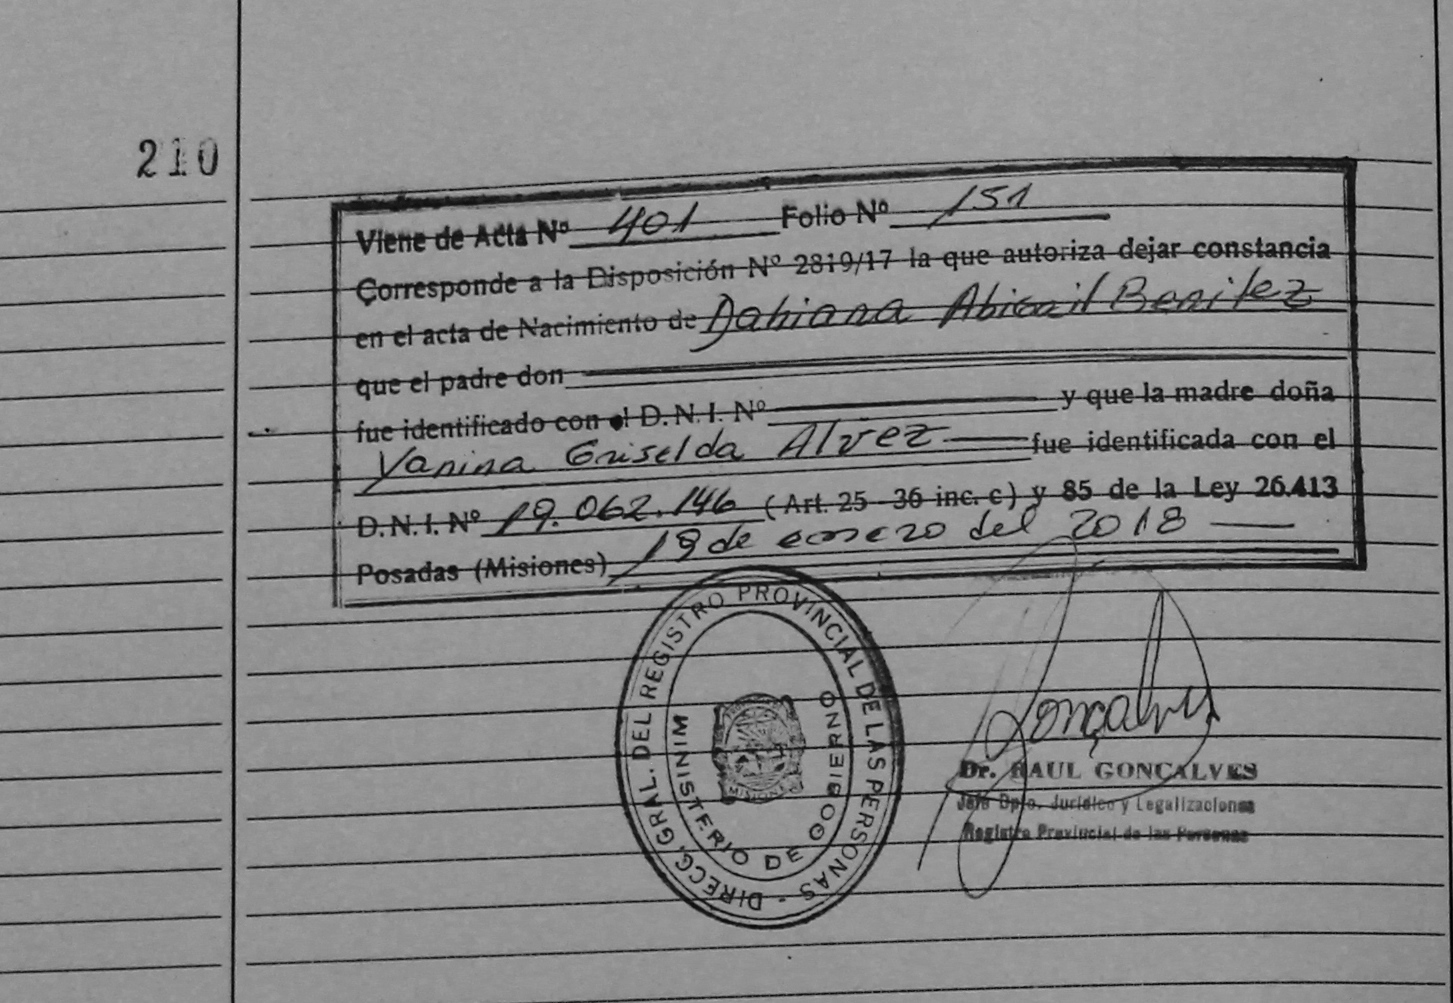 210
Viene de Acta Nº 401 Folio Nº 151
Corresponde a la Disposición Nº 2819/17 la que autoriza dejar constancia
en el acta de Nacimiento de Dahiana Abigail Benitez
que el padre don
fue identificado con el D.N.I. Nº y que la madre doña
Yanina Griselda Alvez fue identificada con el
D.N.I. Nº 19.062.146 (Art. 25 - 36 inc. c) y 85 de la Ley 26.413
Posadas (Misiones) 19 de enero del 2018
DIRECC. GRAL. DEL REGISTRO PROVINCIAL DE LAS PERSONAS -
MINISTERIO DE GOBIERNO
MISIONES
Gonçalves
Dr. RAUL GONÇALVES
Jefe Dpto. Jurídico y Legalizaciones
Registro Provincial de las Personas